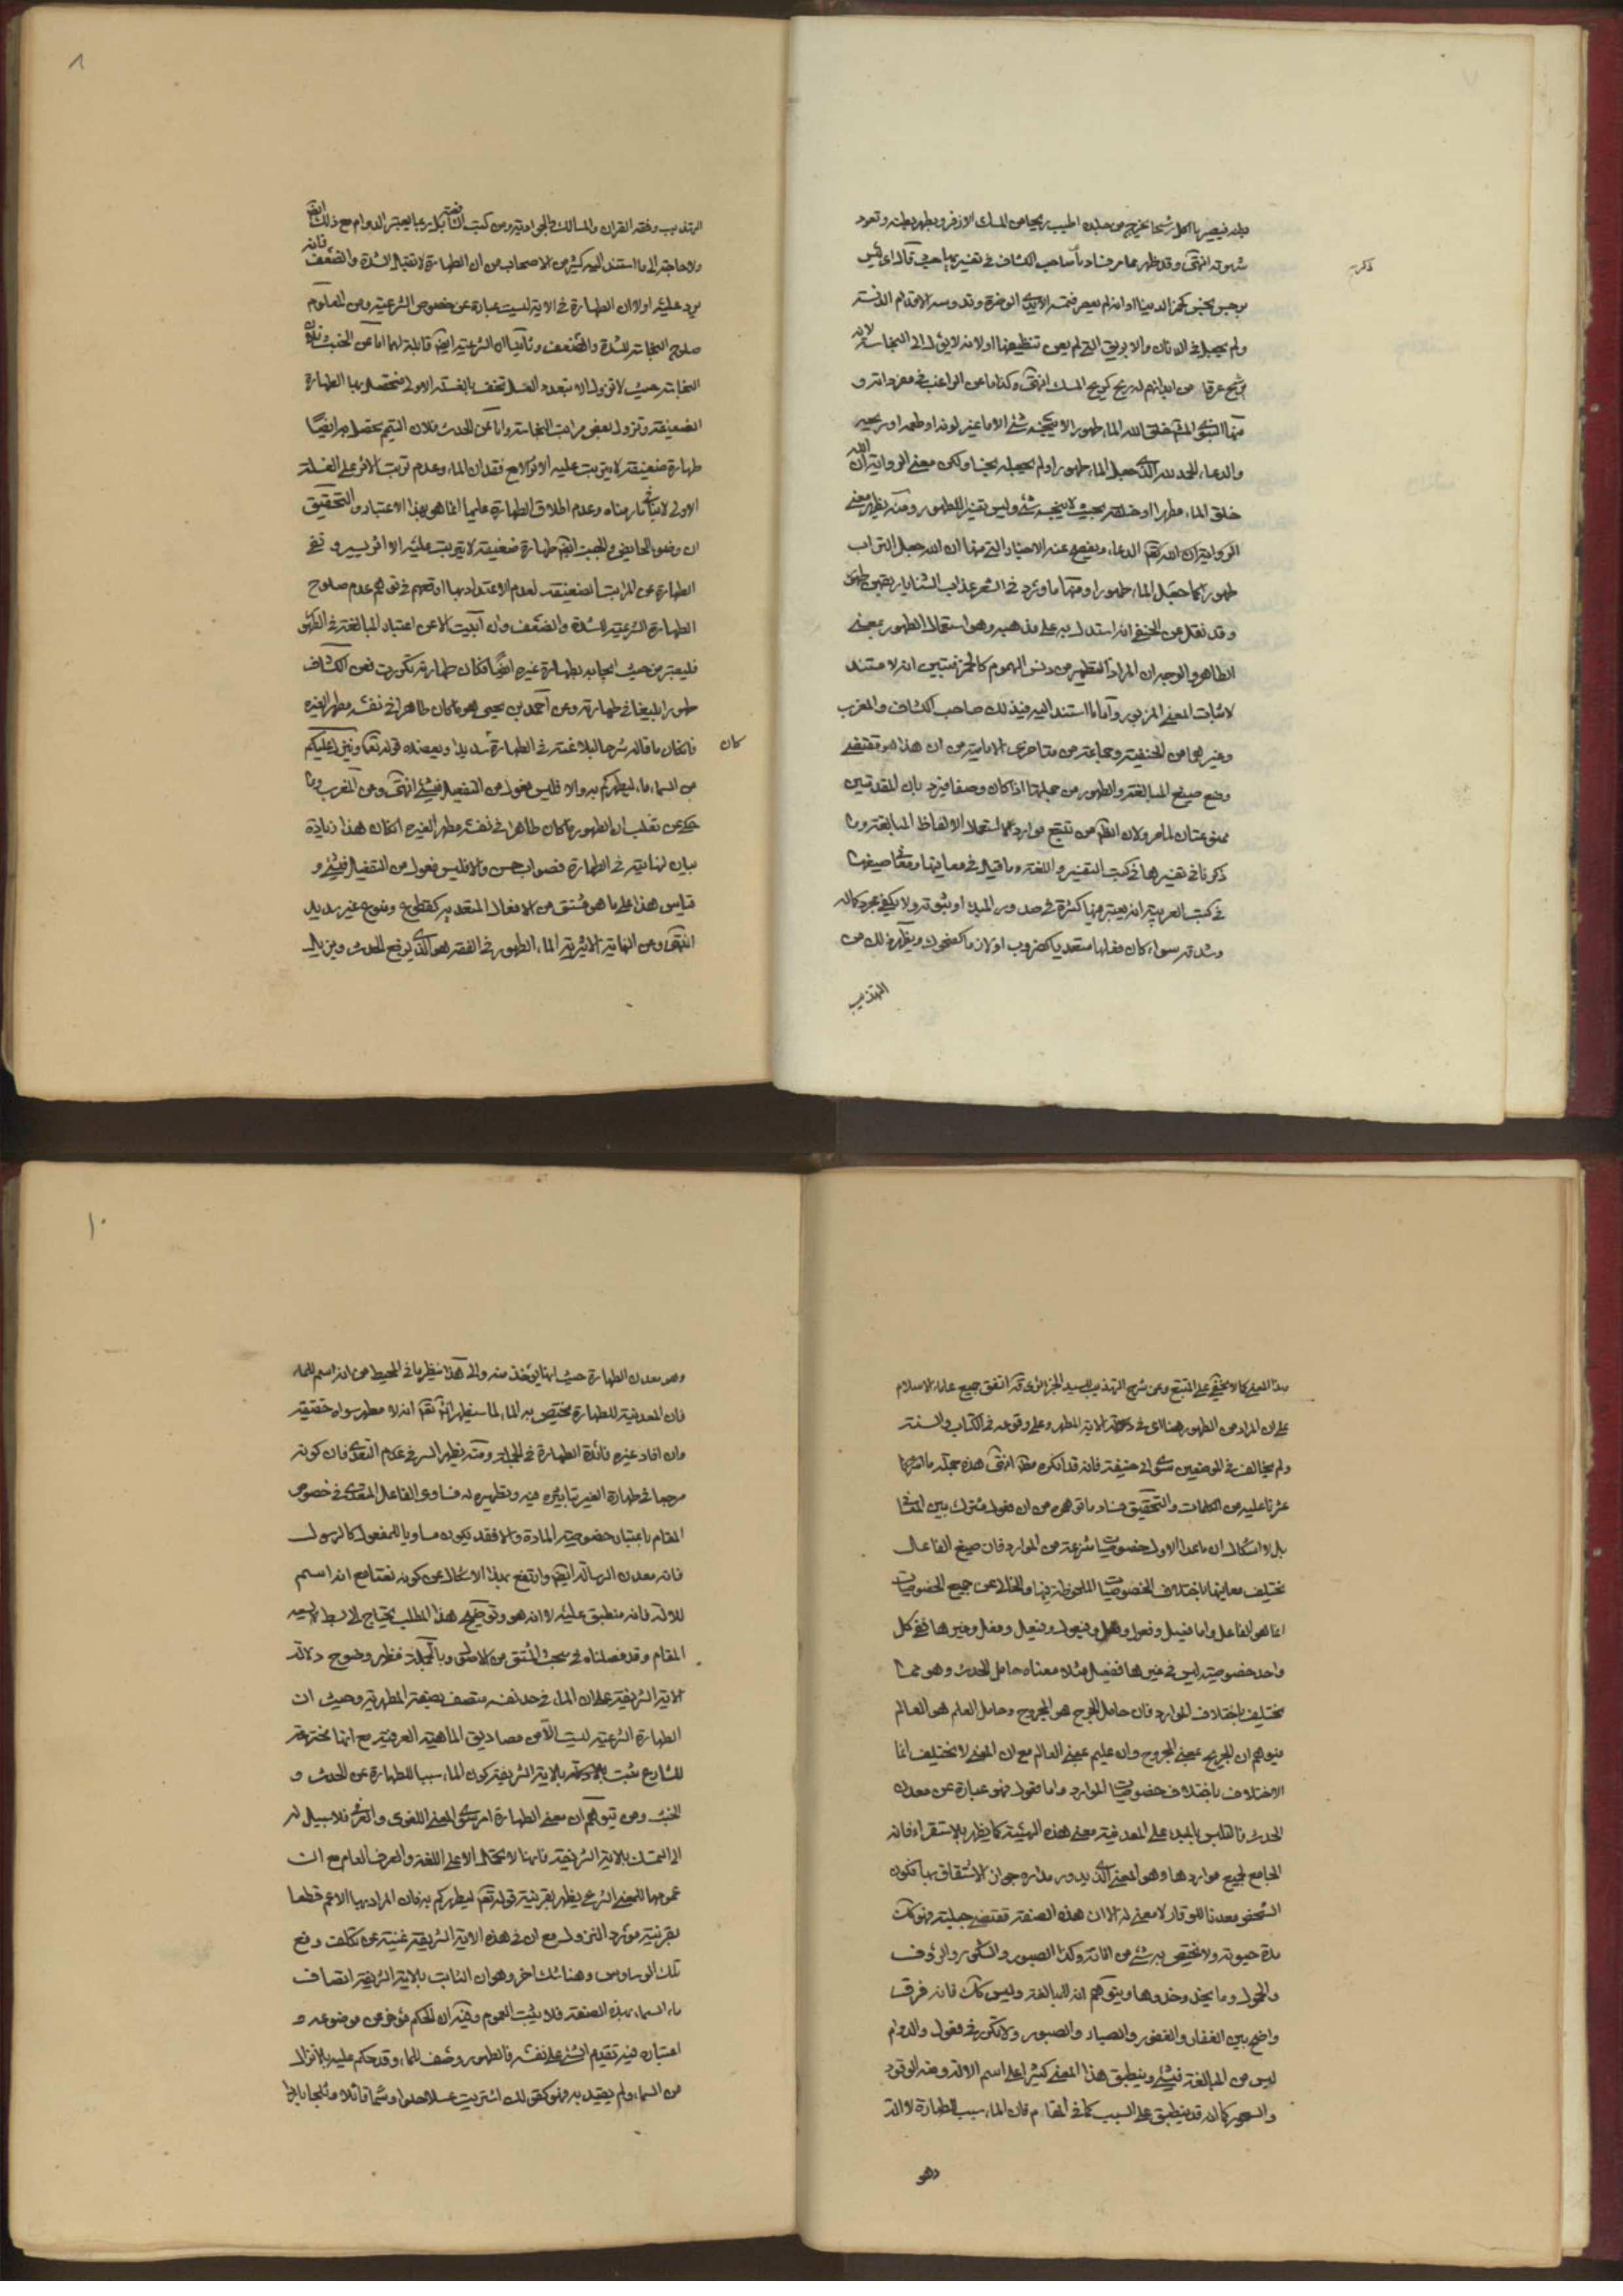 بطنه فيصير ما اكل رشحا يخرج من جلده اطيب ريحا من المسك الاذفر ويطهر بطنه وتعود
شهوته انتهى وقد ظهر مما مر فساد صاحب الكشاف في تفسير قال اى ليس
ذكره
برجس نجس كخمر الدنيا او لانه لم يعصر فتمسه الايدى الوضرة وتدوسه الاقدام الدنسة
ولم يجعل في الدنان والاباريق التى لم يعن تنظيفها او لانه لا يؤل الى النجاسة لانه
يرشح عرقا من ابدانهم له ريح كريح المسك انتهى وكذا ما عن الراغب في مفرداته و
منها النبوى خلق الله الماء طهورا لا ينجسه شئ الا ما غير لونه او طعمه او ريحه
والدعاء الحمد لله الذى جعل الماء طهورا ولم يجعله نجسا ولكن معنى الرواية ان الله
خلق الماء مطهرا او خلقه بحيث لا ينجسه شئ وليس تفسيرا للطهور ومنه يظهر معنى
الدعاء ويفصح عنه الاخبار التى منها ان الله جعل التراب
طهورا كما جعل الماء طهورا ومنها ما ورد في الشعر عذاب الثنايا ريقهن طهور
وقد نقل عن الحنفى انه استدل به على مذهبه وهو استعمال الطهور بمعنى
الطاهر والوجه ان المراد التطهير من دنس الهموم كالخمر فتبين انه لا مستند
لاثبات المعنى المزبور واما ما استند اليه في ذلك صاحب الكشاف والمغرب
وغيرهما من الحنفية وجماعة من متاخرى الامامية من ان هذا هو مقتضى
وضع صيغ المبالغة والطهور من جملتها اذا كان وصفا فيرد بان المقدمتين
ممنوعتان لما مر ولان الظاهر من تتبع موارد استعمال الالفاظ المبالغة وما
ذكروا في تفسيرها في كتب التفسير واللغة وما قيل في معانيها ومعانى صيغها
في كتب العربية انه يعتبر فيها كثرة في صدور المبدء او ثبوته ولا يكفى مجرد كماله
وشدته سواء كان فعلها متعديا كضروب او لازما كضحوك ويظهر ذلك من
التهذيب
٨
التهذيب وفقه القران والمسالك الجوادية ومن كتب اللغة بل ربما يعتبر الدوام مع ذلك ايضا
ولا حاجة الى ما استند اليه كثير من الاصحاب من ان الطهارة لا تقبل الشدة والضعف فانه
يرد عليه اولا ان الطهارة في الاية ليست عبارة عن خصوص الشرعية ومن المعلوم
صلوح النجاسة للشدة والضعف وثانيا ان الشرعية ايضا قابلة لهما اما عن الخبث فلان
النجاسة حيث لا تزول الا بتعدد الغسل تخف بالغسلة الاولى فتحصل بها الطهارة
الضعيفة وتزول بعض مراتب النجاسة واما عن الحدث فلان التيمم يحصل به ايضا
طهارة ضعيفة لا يترتب عليه الاثر الا مع فقدان الماء وعدم ترتب الاثر على الغسلة
الاولى لا ينافي ما رمناه وعدم اطلاق الطهارة عليها انما هو بهذا الاعتبار والتحقيق
ان وضوء الحايض والجنب ايضا طهارة ضعيفة لا يترتب عليه الا اثر يسير ونفى
الطهارة عن المراتب الضعيفة لعدم الاعتداد بها اوقعهم في توهم عدم صلوح
الطهارة الشرعية للشدة والضعف وان ابيت الا عن اعتبار المبالغة في الطهور
فليعتبر من حيث ايجابه لطهارة غيره ايضا فكان طهارته تكررت فعن الكشاف
طهورا بليغا في طهارته وعن احمد بن يحيى هو ما كان طاهرا في نفسه مطهرا لغيره
فان كان ما قاله شرحا لبلاغته في الطهارة كان سديدا ويعضده قوله تعالى وينزل عليكم
من السماء ماء ليطهركم به والا فليس فعول من التفعيل في شئ انتهى وعن المغرب وما
حكى عن ثعلب ان الطهور ما كان طاهرا في نفسه مطهرا لغيره ان كان هذا زيادة
بيان لنهايته في الطهارة فصواب حسن والا فليس فعول من التفعيل في شئ و
قياس هذا على ما هو مشتق من الافعال المتعدية كقطوع ومنوع غير سديد
انتهى وعن النهاية الاثيرية الماء الطهور في الفقه هو الذى يرفع الحدث ويزيل
بهذا المعنى كما لا يخفى على المتتبع وعن شرح التهذيب للسيد الجزائرى قد اتفق جميع علماء الاسلام
على ان المراد من الطهور هنا اى في الاية المطهر وعلى وقوعه في الكتاب والسنة
ولم يخالف في الموضعين سوى ابى حنيفة فانه قد انكره انتهى هذه جملة ما
عثرنا عليه من الكلمات والتحقيق فساد ما توهم من ان فعول مشترك بين المعانى
بل لا اشكال ان ما عدا الاول خصوصيات منتزعة من الموارد فان صيغ الفاعل
تختلف معانيها باختلاف الخصوصيات الملحوظة فيها والخالى عن جميع الخصوصيات
انما هو الفاعل واما فعيل وفعول وفعل وغيرها ففى كل
واحد خصوصية ليس في غيرها ففعيل مثلا معناه حامل الحدث وهو مما
يختلف باختلاف الموارد فان حامل الجرح هو المجروح وحامل العلم هو العالم
فيتوهم ان الجريح بمعنى المجروح وان عليم بمعنى العالم مع ان المعنى لا يختلف انما
الاختلاف باختلاف خصوصيات الموارد واما فعول فهو عبارة عن معدن
الحدث فالتلبس بالمبدء على المعدنية معنى هذه الهيئة كما يظهر بالاستقراء فانه
الجامع لجميع مواردها وهو المعنى الذى يدور مداره جواز الاشتقاق بها فكون
الشخص معدنا للوقار لا معنى له الا ان هذه الصفة تقتضى جبلته فهو كك
مدة حيوته ولا يختص به شئ من افاته وكذا الصبور والشكور والرؤف
والحمول وما يحذو حذوها ويتوهم انه للمبالغة وليس كك فانه فرق
واضح بين الغفار والغفور والصبار والصبور ولا تكرر في فعول والدوام
ليس من المبالغة في شئ وينطبق هذا المعنى كثيرا على اسم الالة ومنه الوقود
والسحور كما انه قد ينطبق على السبب كما في المقام فان الماء سبب للطهارة لا الة
وهو
١٠
وهو معدن الطهارة حيث انها يؤخذ منه والى هذا ينظر ما في المحيط من انه اسم للماء
فان المعدنية للطهارة مختص به الماء لما سيظهر انشاء الله تعالى انه لا مطهر سواه حقيقة
وان افاد غيره فائدة الطهارة في الجملة ومنه يظهر السر في عدم التعدى فان كونه
مرجعا في طهارة الغير بتاثيره فيه وتطهيره له فساوى الفاعل المتعدى في خصوص
المقام باعتبار خصوصية المادة والا فقد يكون مساويا للمفعول كالرسول
فانه معدن الرسالة ايضا وارتفع بهذا الاشكال عن كونه نعتا مع انه اسم
للالة فانه منطبق عليه لا انه هو وتوضيح هذا المطلب يحتاج الى بسط لا يسعه
المقام وقد فصلناه في مبحث المشتق من الاصول وبالجملة فظهر وضوح دلالة
الاية الشريفة على ان الماء في حد نفسه متصف بصفة المطهرية وحيث ان
الطهارة الشرعية ليست الا من مصاديق الماهية العرفية مع انها مخترعة
للشارع ثبت بالاية الشريفة كون الماء سببا للطهارة عن الحدث و
الخبث ومن يتوهم ان معنى الطهارة امر سوى المعنى اللغوى والعرفى فلا سبيل له
الى التمسك بالاية الشريفة فانها لا تحمل الا على اللغة والعرف العام مع ان
عمومها للمعنى الشرعى يظهر بقرينة قوله تعالى ليطهركم به فان المراد بها الاعم قطعا
بقرينة مورد النزول مع ان في هذه الاية الشريفة غنية عن تكلف دفع
تلك الوساوس وهنا شك اخر وهو ان الثابت بالاية الشريفة اتصاف
ماء السماء بهذه الصفة فلا يثبت العموم وفيه ان الحكم مؤخر عن موضوعه و
اعتباره فيه تقديم الشئ على نفسه فالطهور وصف للماء وقد حكم عليه بالانزال
من السماء ولم يقيد به وهو كقولك اشتريت عسلا حلوا وسما قاتلا وثلجا باردا